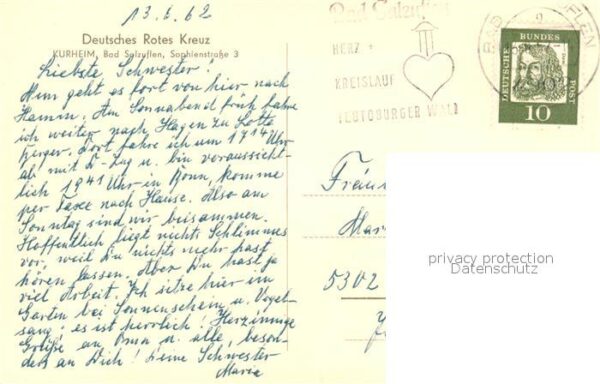 13.6.62
Deutsches Rotes Kreuz
KURHEIM, Bad Salzuflen, Sophienstraße 3
Liebste Schwester!
Nun geht es fort von hier nach
Hamm. Am Sonnabend früh fahre
ich weiter nach Hagen zu Lotte
Berger. Dort fahre ich um 17 14 Uhr
ab mit D-Zug u. bin voraussicht-
lich 19 41 Uhr in Bonn, komme
per Taxe nach Hause. Also am
Sonntag sind wir beisammen.
Hoffentlich liegt nichts Schlimmes
vor, weil Du nichts mehr hast
hören lassen. Aber Du hast ja
viel Arbeit. Ich sitze hier im
Garten bei Sonnenschein u. Vogel-
sang: es ist herrlich! Herzinnige
Grüße an Oma u. alle, beson-
ders an Dich! Deine Schwester
Maria
Bad Salzuflen
HERZ +
KREISLAUF
TEUTOBURGER WALD
BAD
UFLEN
DEUTSCHE BUNDES POST
10
Fräu
Mar
5302
privacy protection
Datenschutz